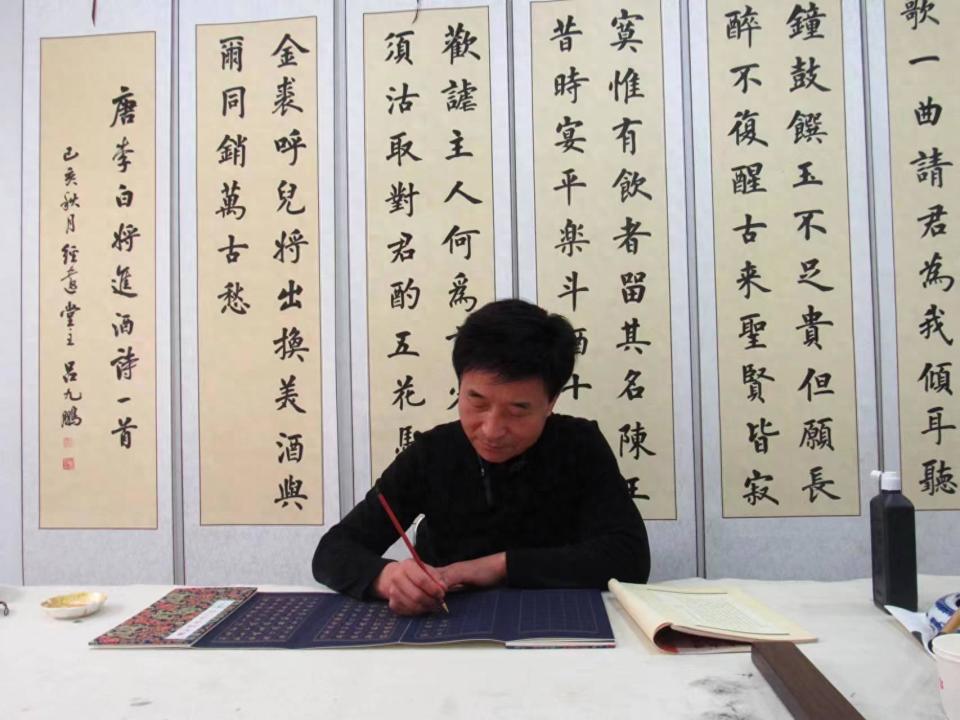 歌一曲請君為我傾耳聽
鐘鼓饌玉不足貴但願長
醉不復醒古来聖賢皆寂
寞惟有飲者留其名陳王
昔時宴平楽斗酒十
歡謔主人何爲
須沽取對君酌五花馬
金裘呼兒将出換美酒與
爾同銷萬古愁
唐李白将進酒詩一首
己亥秋月經堂主吕九鵬